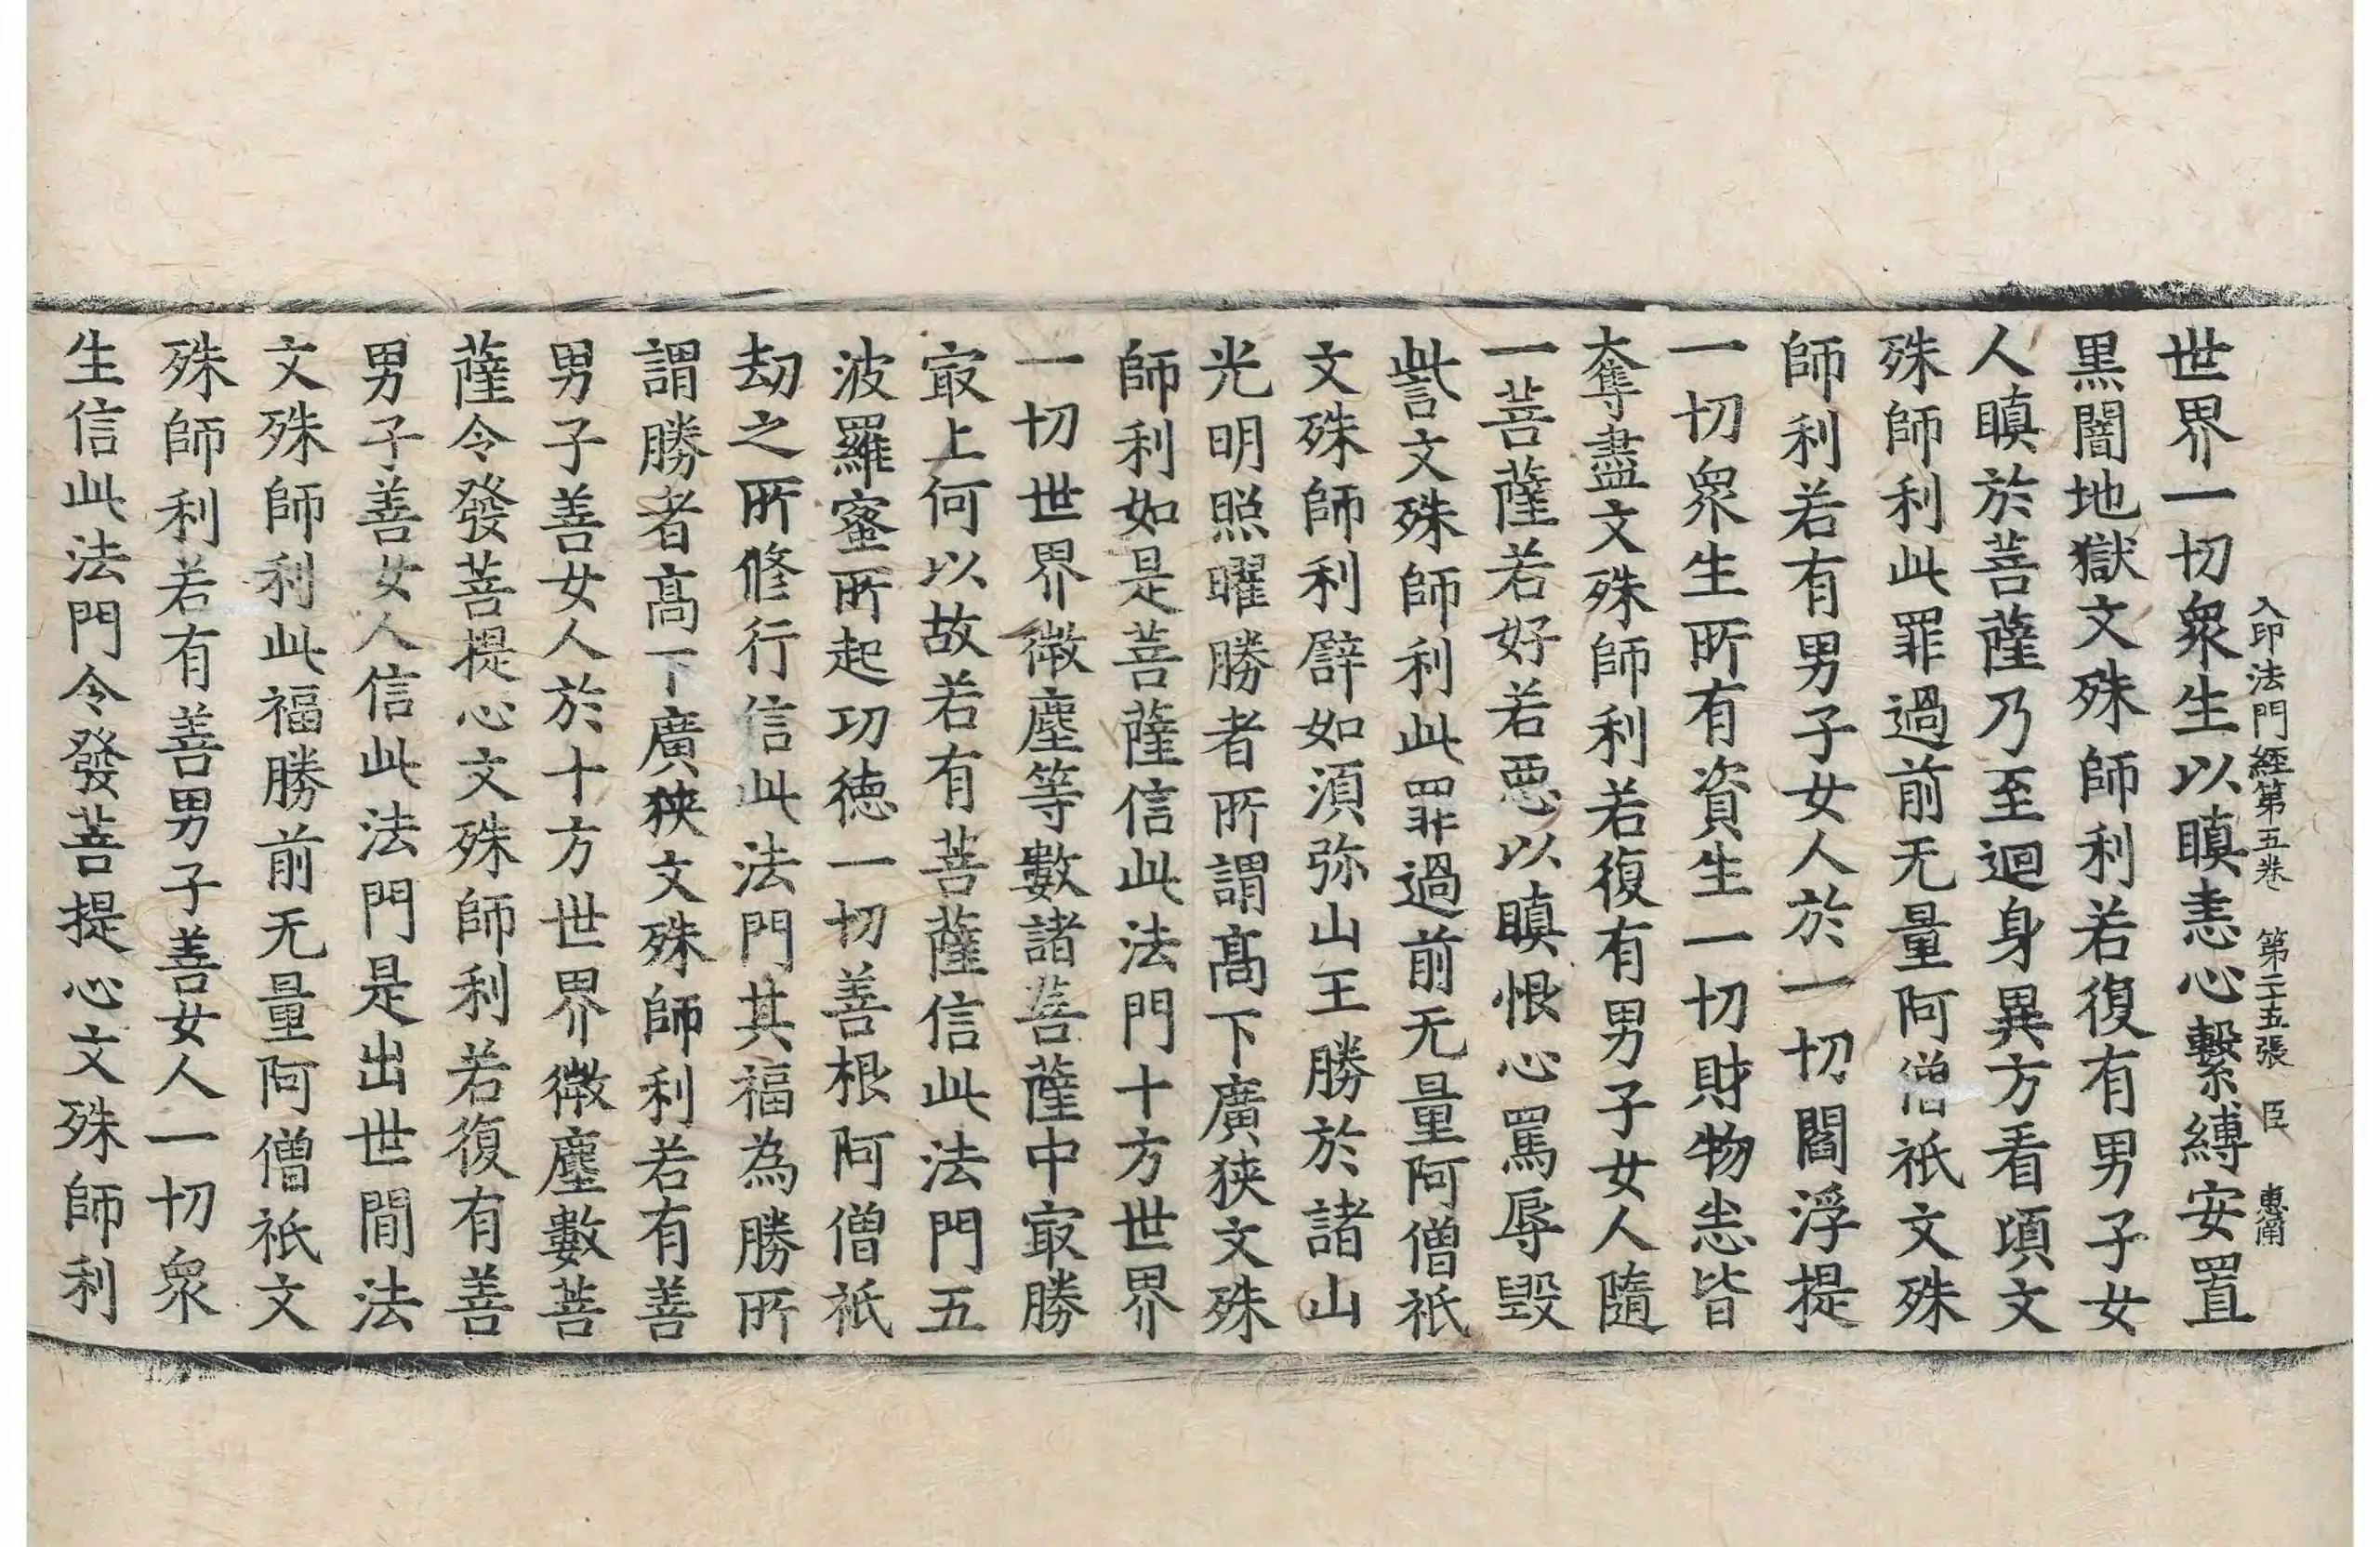 入印法門經第五卷 第二十五張 臣 惠蕳
世界一切衆生以瞋恚心繫縛安置
黒闇地獄文殊師利若復有男子女
人瞋於菩薩乃至迴身異方看頃文
殊師利此罪過前无量阿僧祇文殊
師利若有男子女人於一切閻浮提
一切衆生所有資生一切財物悉皆
奪盡文殊師利若復有男子女人隨
一菩薩若好若惡以瞋恨心罵辱毀
訾文殊師利此罪過前无量阿僧祇
文殊師利譬如須弥山王勝於諸山
光明照曜勝者所謂髙下廣狹文殊
師利如是菩薩信此法門十方世界
一切世界微塵等數諸菩薩中㝡勝
㝡上何以故若有菩薩信此法門五
波羅蜜所起功徳一切善根阿僧祇
劫之所修行信此法門其福為勝所
謂勝者髙下廣狹文殊師利若有善
男子善女人於十方世界微塵數菩
薩令發菩提心文殊師利若復有善
男子善女人信此法門是出世間法
文殊師利此福勝前无量阿僧祇文
殊師利若有善男子善女人一切衆
生信此法門令發菩提心文殊師利